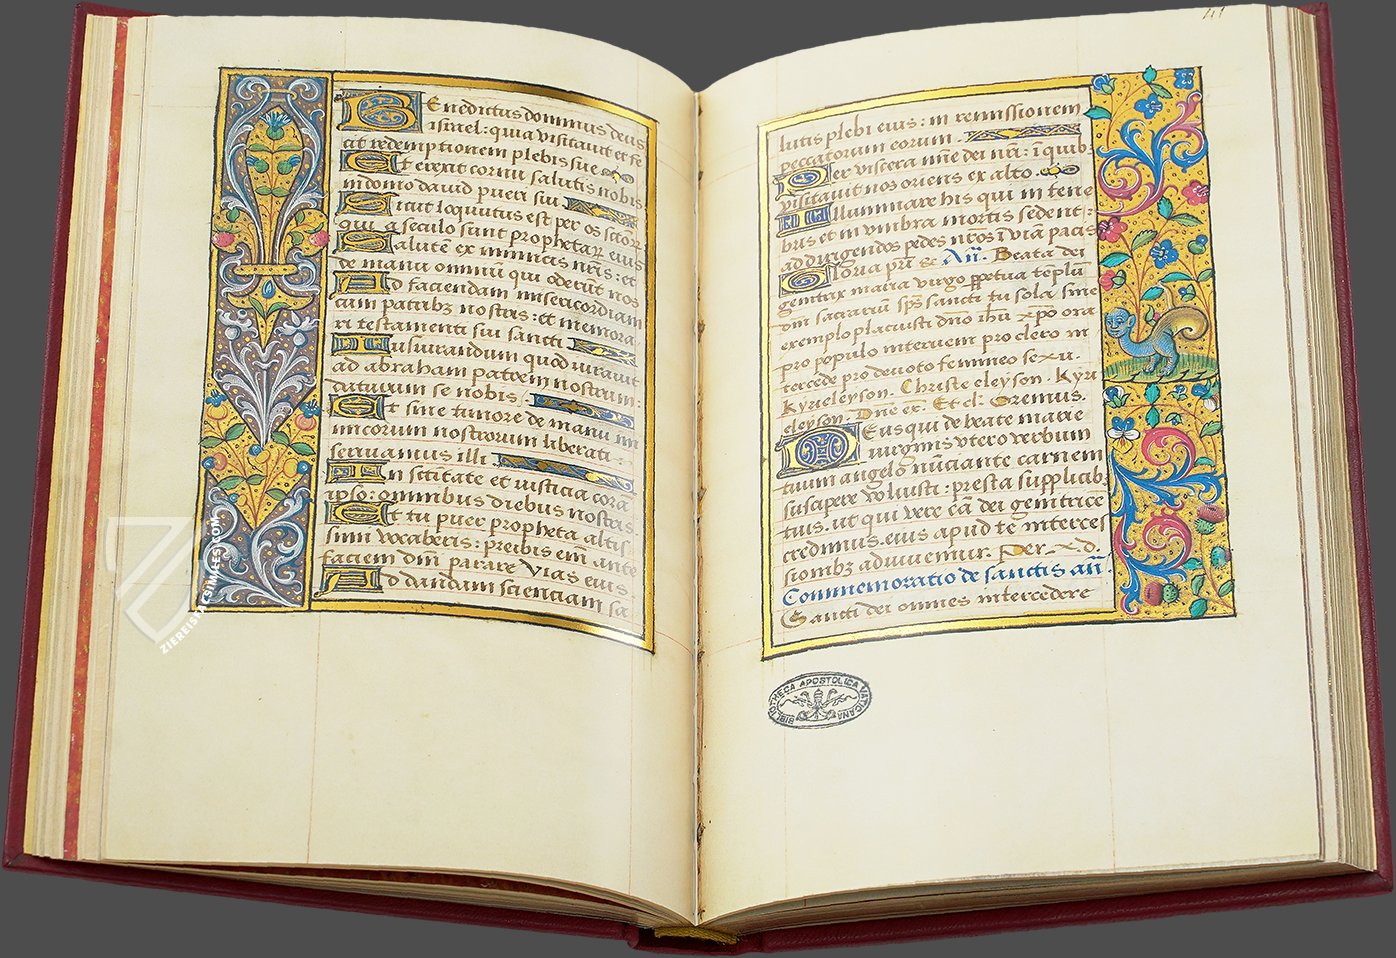 Benedictus dominus deus
israel: quia visitavit et fe
cit redemptionem plebis sue
Et erexit cornu salutis nobis
in domo david pueri sui
Sicut loquutus est per os sctōrꝝ
qui a seculo sunt prophetaꝝ eius
Salutē ex inimicis nr̄is: et
de manu omniū qui oderūt nos
Ad faciendam misericordiam
cum patribꝫ nostris: et memora
ri testamenti sui sancti
Iusiurandum quod iuravit
ad abraham patrem nostrum:
daturum se nobis
Et sine timore de manu ini
micorum nostrorum liberati.
serviamus illi
In scītitate et iusticia corā
ipso: omnibus diebus nostris
Et tu puer propheta altis
simi vocaberis: preibis em̄ ante
faciem dn̄i parare vias eius
Ad dandam scientiam sa
41
lutis plebi eius: in remissionem
peccatorum eorum.
Per viscera mīe dei nr̄i: ī quibꝫ
visitavit nos oriens ex alto.
Illuminare his qui in tene
bris et in umbra mortis sedent:
ad dirigendos pedes nr̄os ī viā pacis
Gloria pr̄i &c An̄. Beata dei
genitrix maria virgo ꝑpetua teplū
dn̄i sacrariū sp̄s sancti tu sola sine
exemplo placuisti dn̄o ih̄u xp̄o ora
pro populo interveni pro clero in
tercede pro devoto femineo sexu.
Kyrieleyson. Christe eleyson. Kyri
eleyson. Dn̄e ex. Et cl. Oremus.
Deus qui de beate marie
virginis utero verbum
tuum angelo nūciante carnem
suscipere voluisti: presta supplicibꝫ
tuis. ut qui vere eā dei genitricē
credimus. eius apud te interces
sionibꝫ adiuvemur. Per x. d.
Commemoratio de sanctis an̄.
Sancti dei omnes intercedere
BIBLIOTHECA APOSTOLICA VATICANA
ZIEREIS FACSIMILES.COM